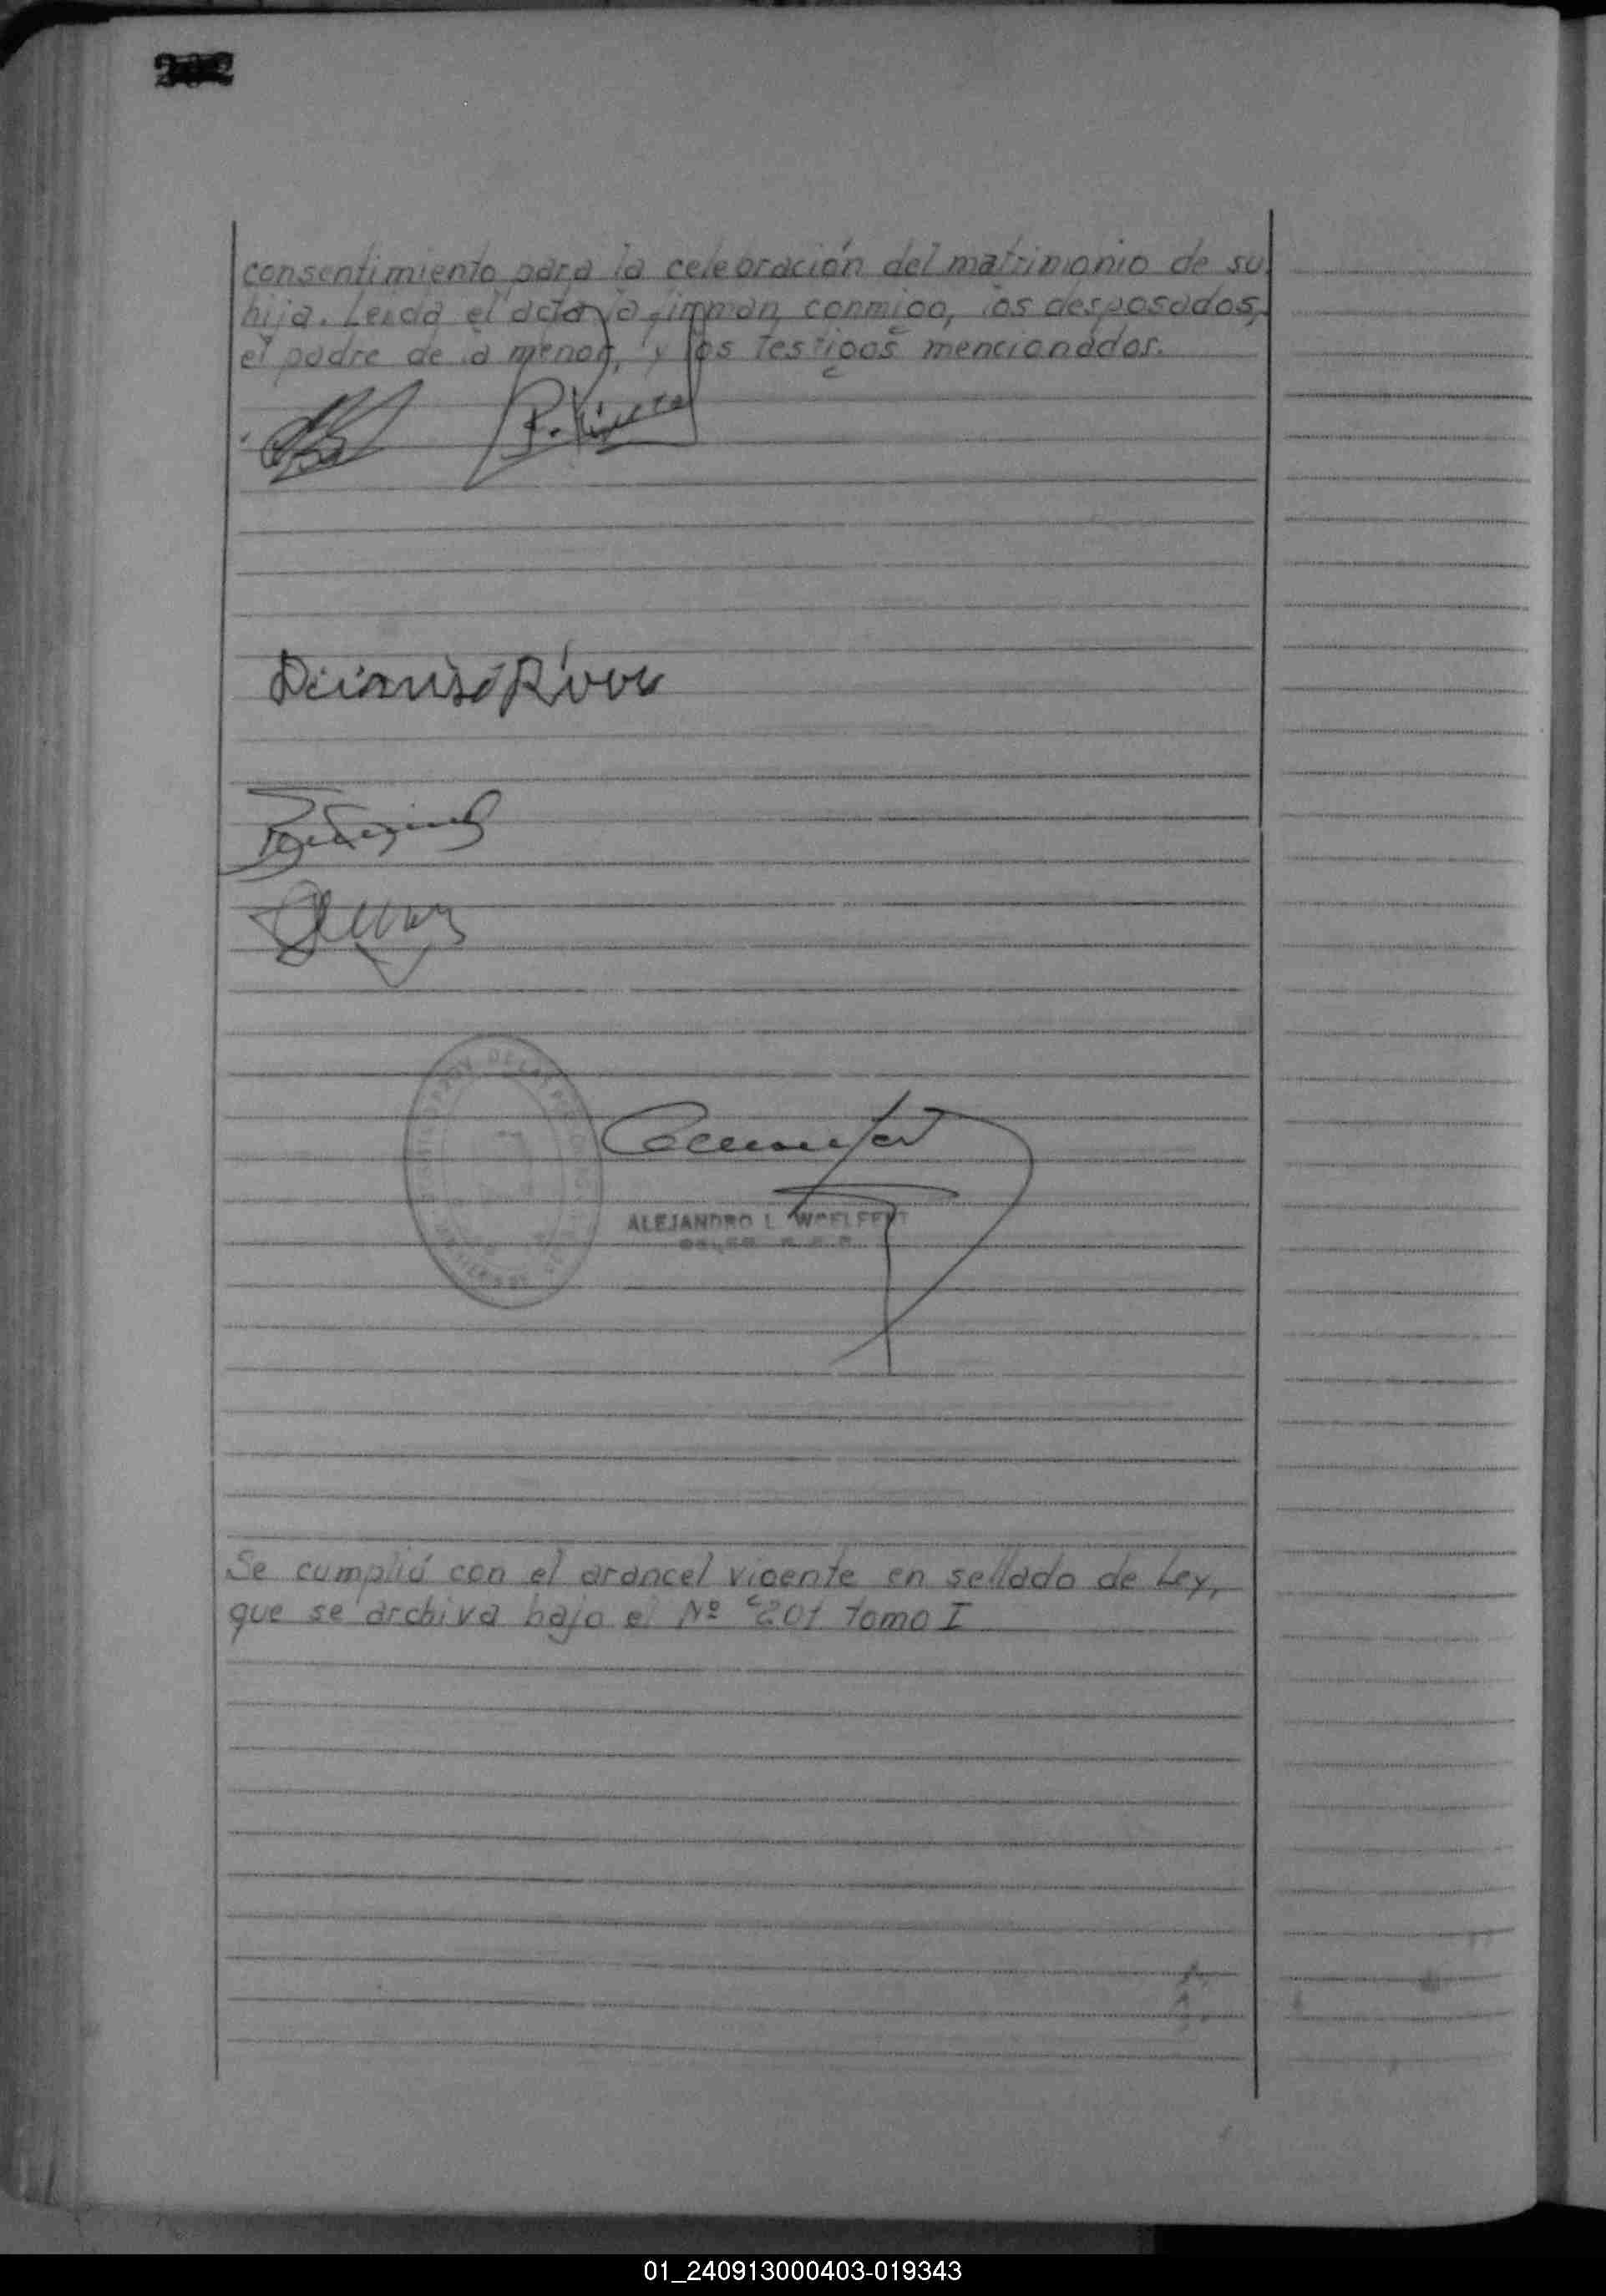 202
consentimiento para la celebración del matrimonio de su
hija. Leída el acta la firman conmigo, los desposados,
el padre de la menor, y los testigos mencionados.
ALEJANDRO L. WOELFERT
Se cumplió con el arancel vigente en sellado de Ley,
que se archiva bajo el Nº 201 tomo I
01_240913000403-019343